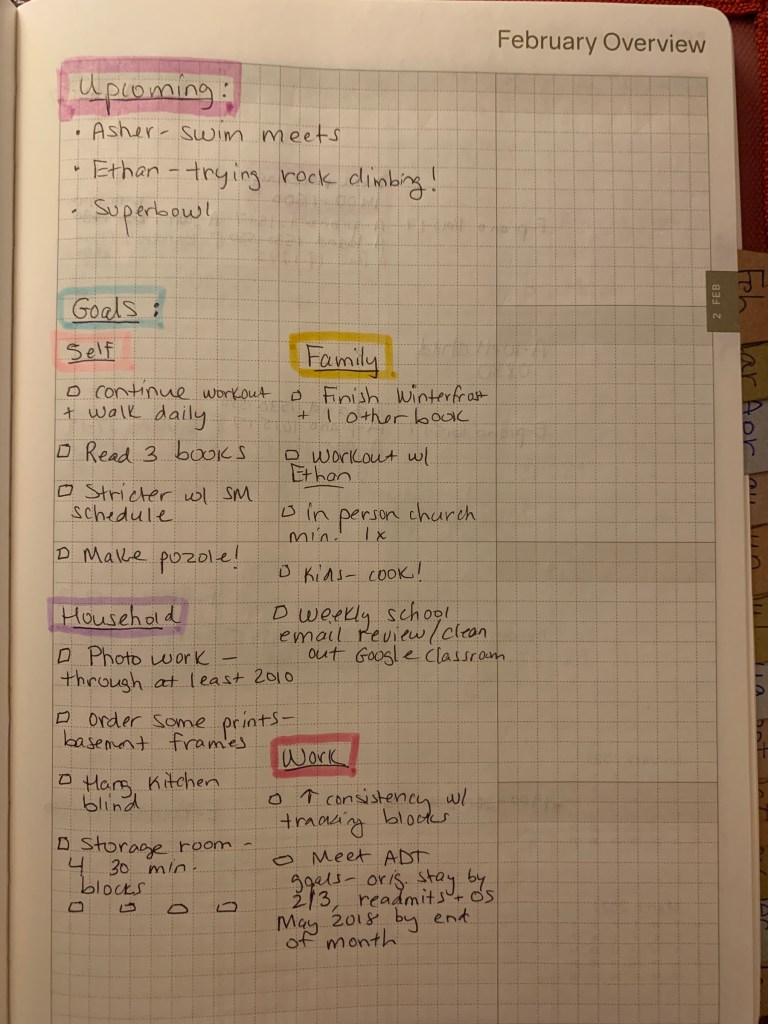 February Overview
Upcoming:
• Asher - swim meets
• Ethan - trying rock climbing!
• Superbowl
2 FEB
Goals:
Self
continue workout
+ walk daily
Read 3 books
Stricter w/ SM
schedule
Make pozole!
Household
Photo work -
through at least 2010
order some prints -
basement frames
Hang kitchen
blind
Storage room -
4 30 min.
blocks
Family
Finish Winterfrost
+ 1 other book
workout w/
Ethan
in person church
min. 1x
Kids - cook!
weekly school
email review/clean
out Google Classroom
Work
↑ consistency w/
tracking blocks
Meet ADT
goals - orig. stay by
2/3, readmits + OS
May 2018 by end
of month
Feb
Mar
Apr